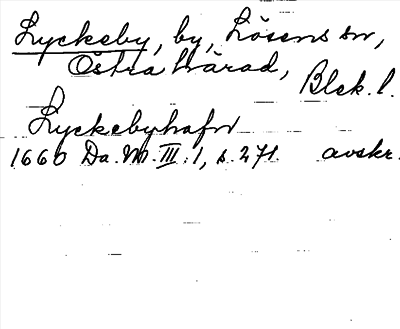 Lyckeby, by, Lösens sn,
Östra härad,
Blek. l.
Lyckebyhafn
1660 Da. M. III: 1, s. 271. avskr.